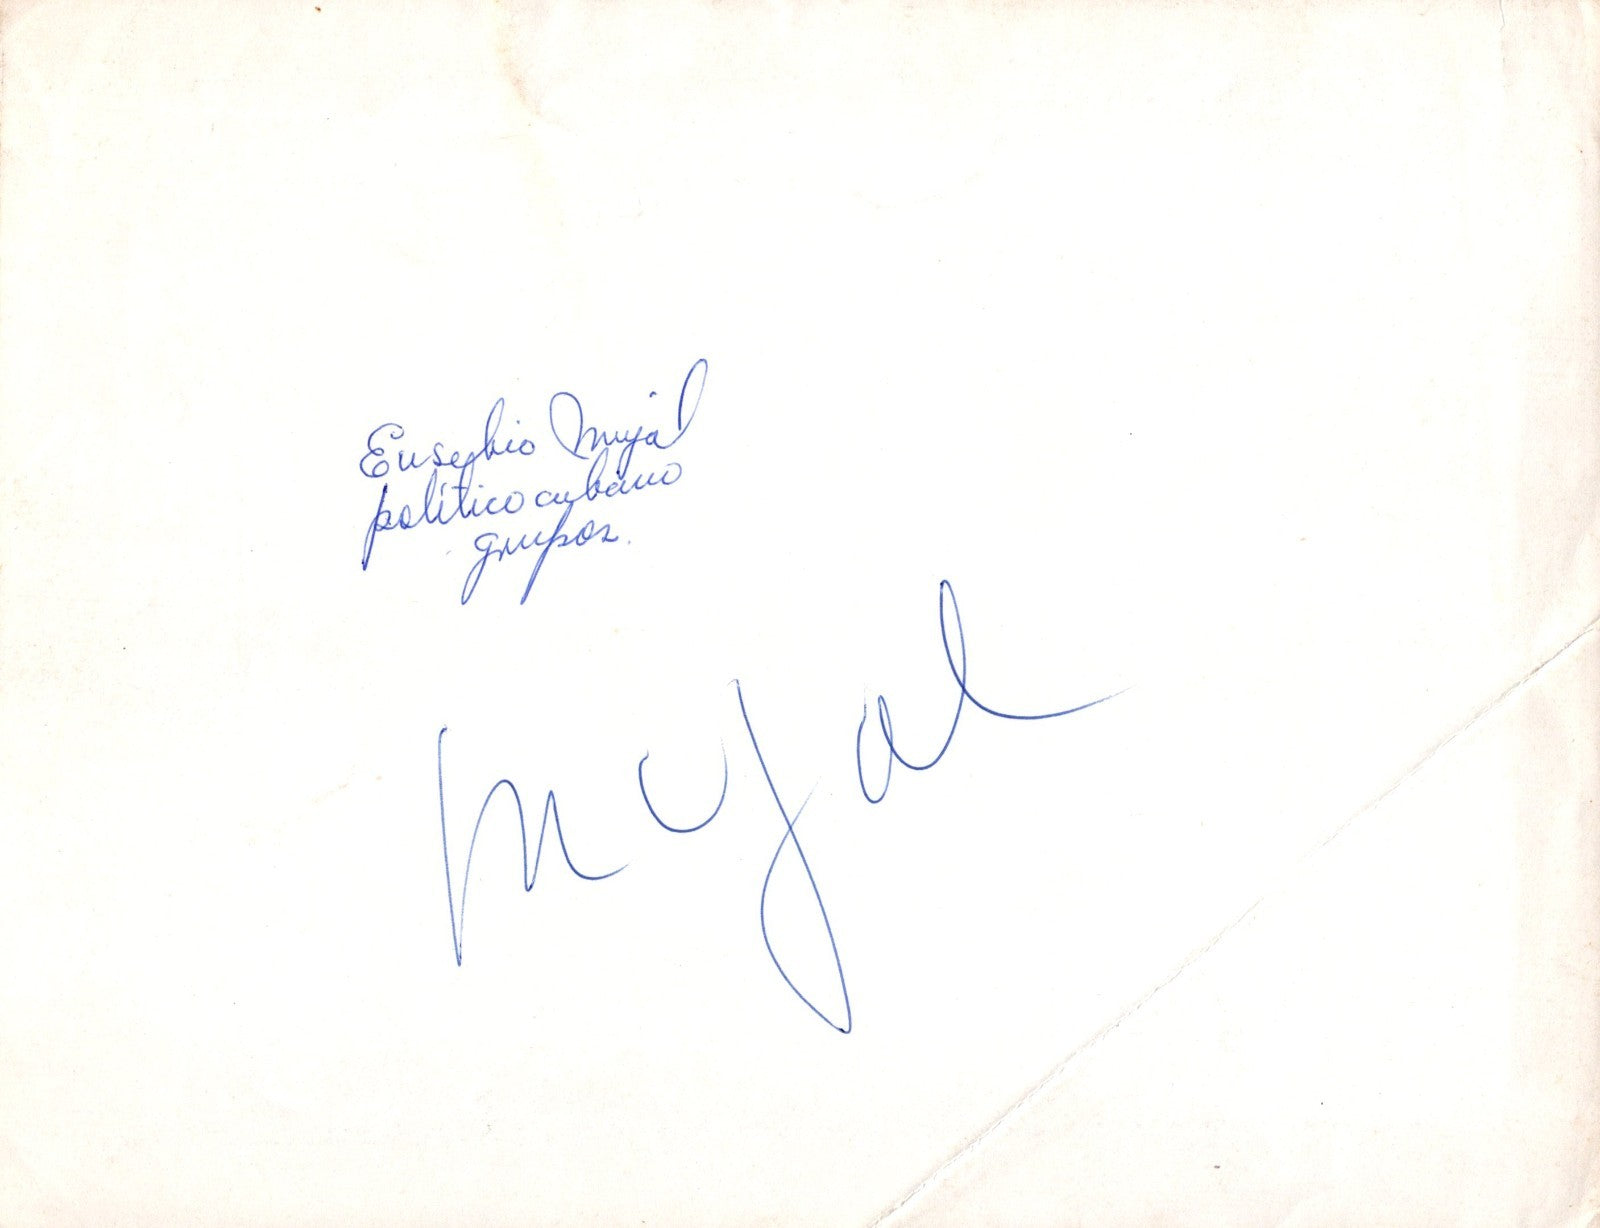 Eusebio Mujal
político cubano
grupos.
Mujal